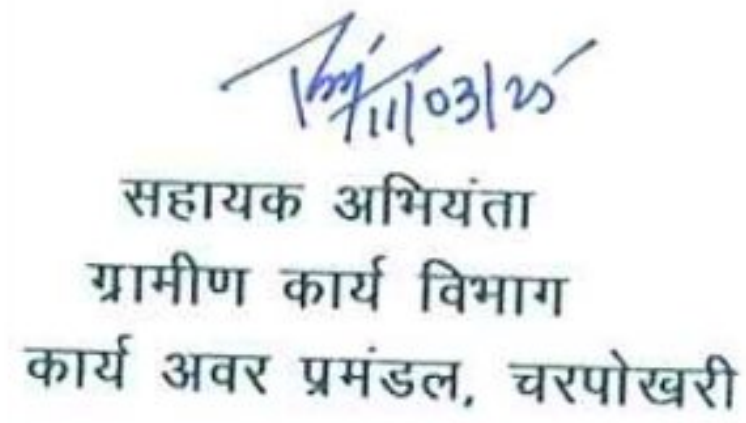 11/03/25
सहायक अभियंता
ग्रामीण कार्य विभाग
कार्य अवर प्रमंडल, चरपोखरी